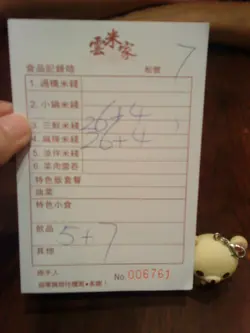 雲米家
食品記錄咭 枱號 7
1. 過橋米綫
2. 小鍋米綫 26+4
3. 三鮮米綫
4. 麻辣米綫 26+4
5. 涼伴米綫
6. 菜肉雲吞
特色飯套餐
蔬菜
特色小食
飲品 5+7
其他
經手人 No 006761